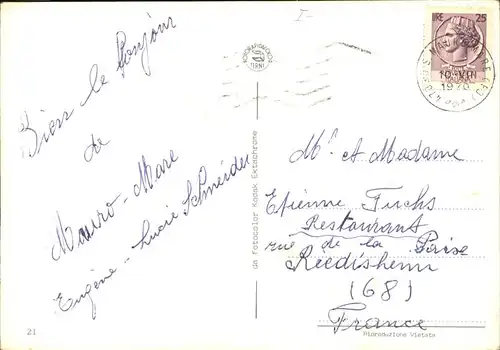 Bien le Bonjour
de
Mauro-Mare
Eugène - Lucie Schneider
21
da Fotocolor Kodak Ektachrome
I-
LIRE 25
10-VIII
1970
Mr et Madame
Etienne Fuchs
Restaurant
rue de la Paise
Reedisheim
(68)
France
Riproduzione Vietata